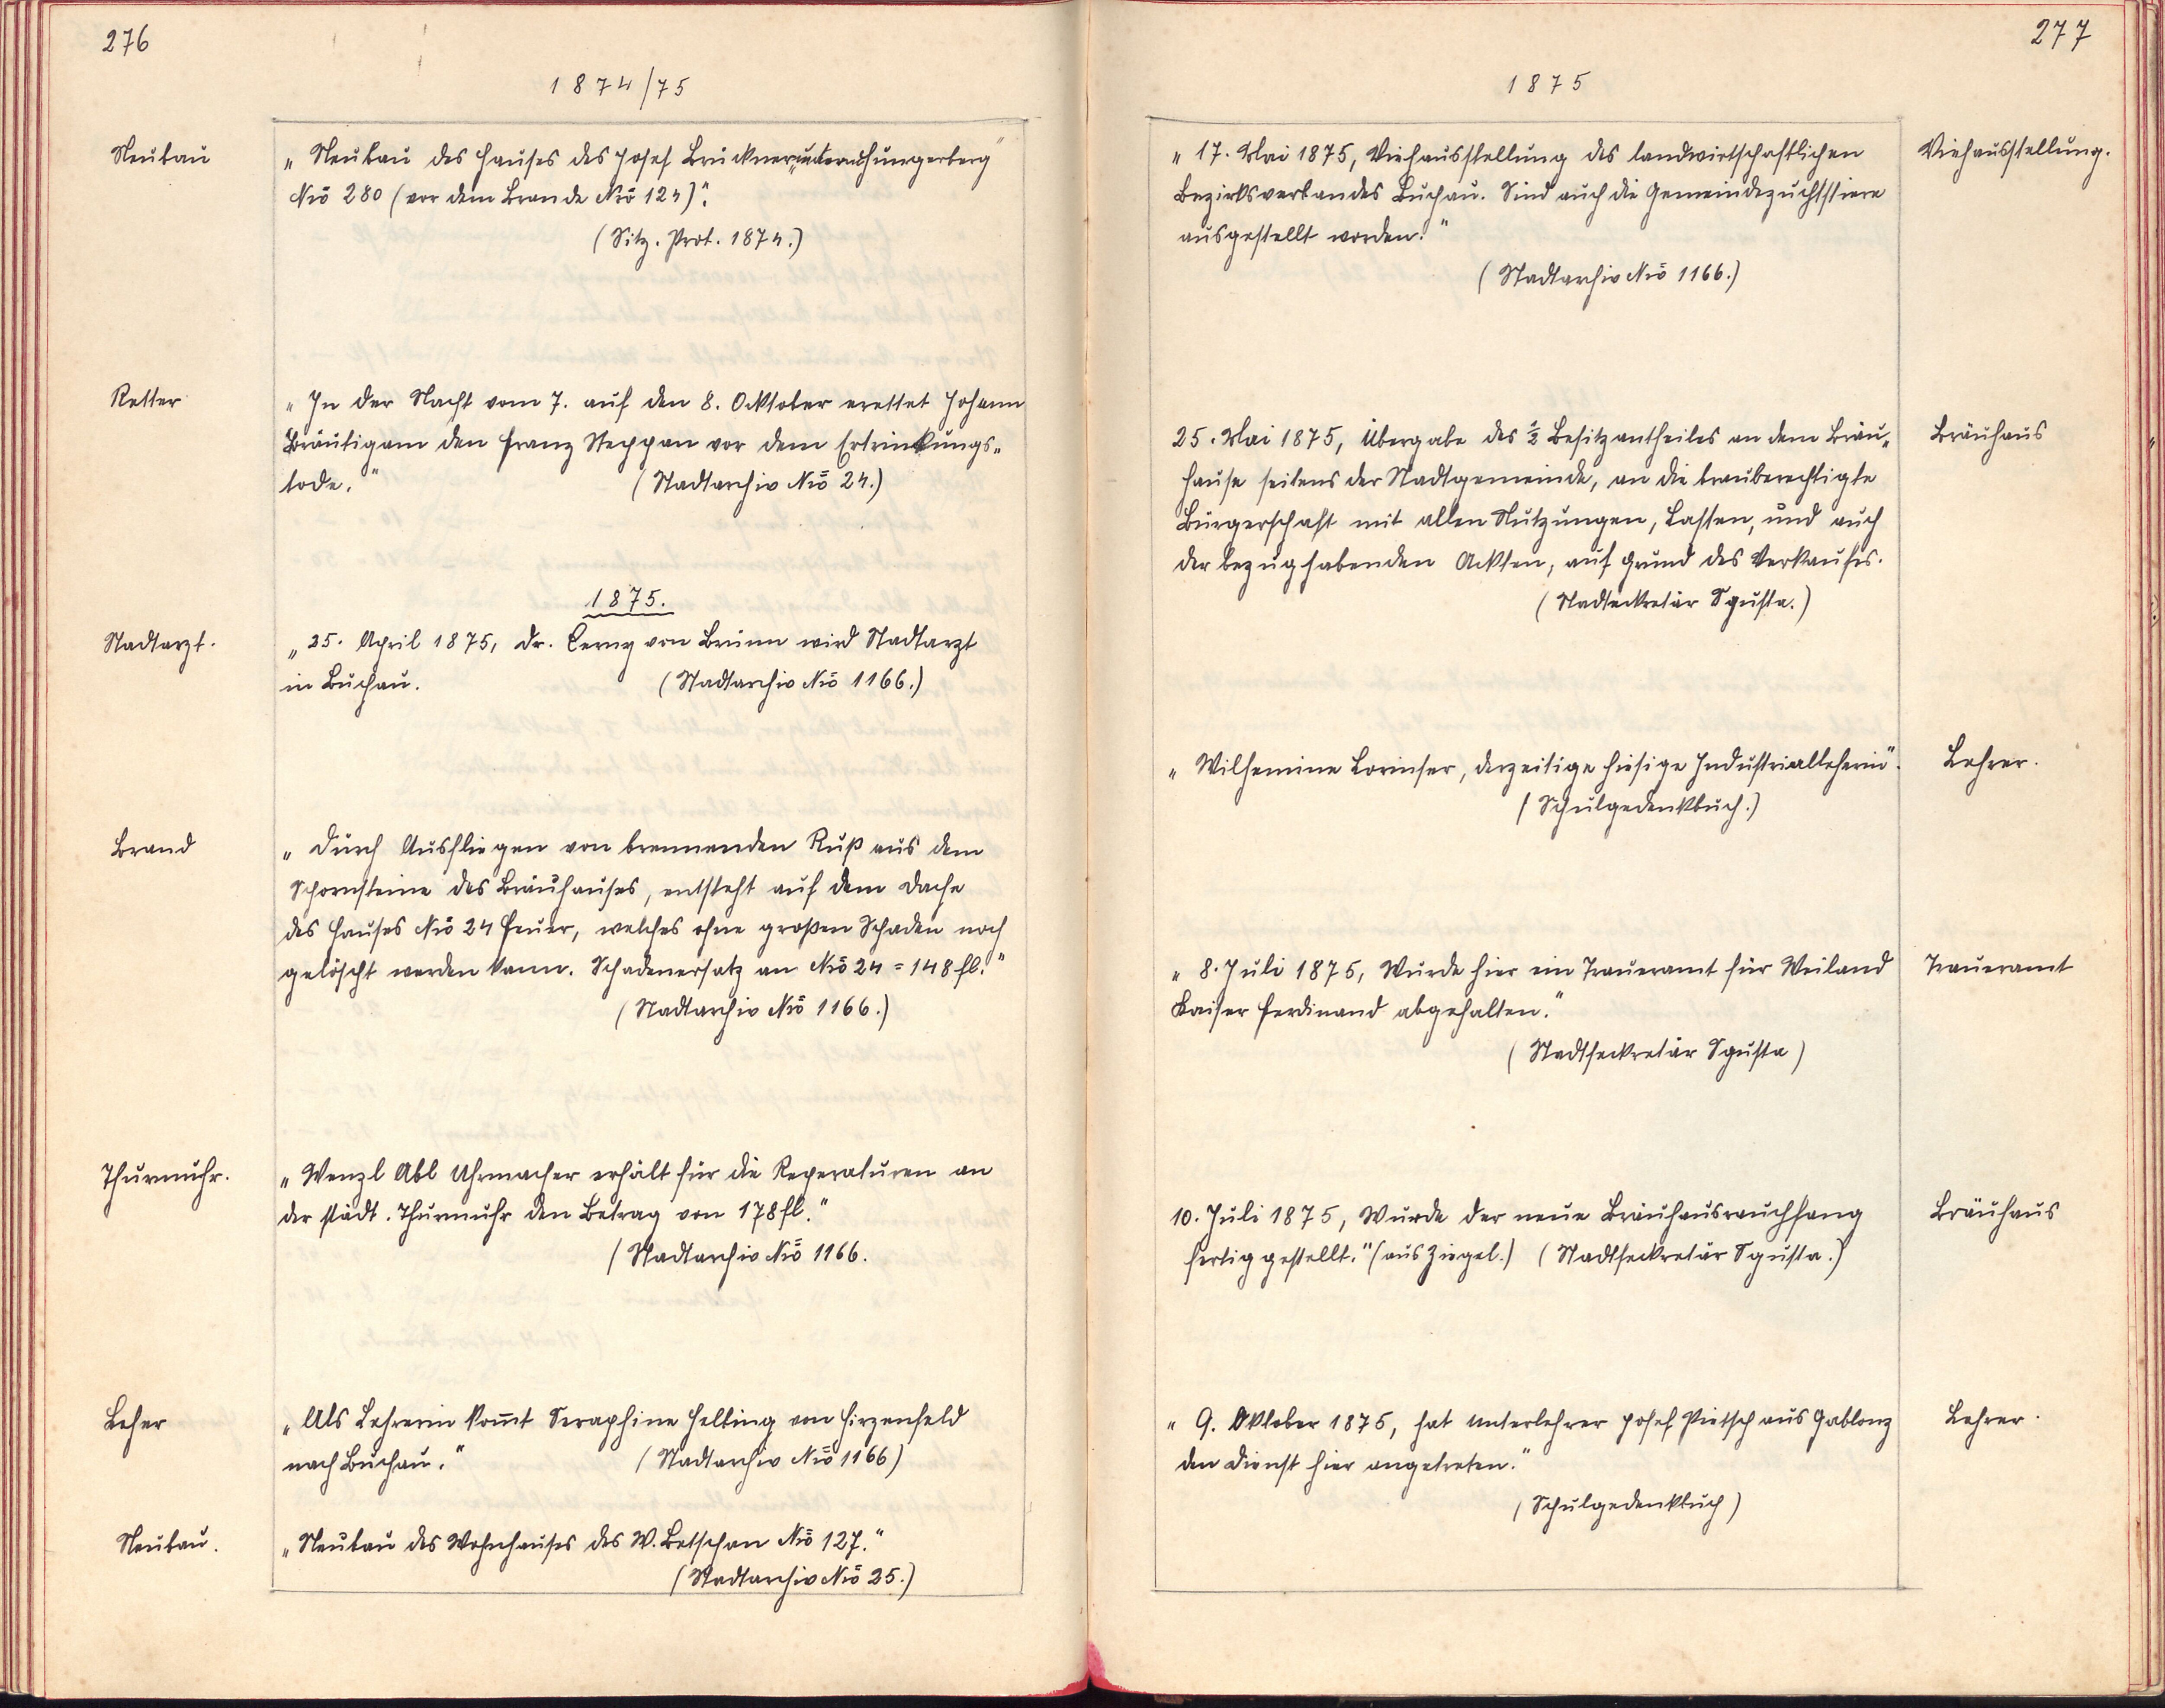 276
1874/75
Neubau
„Neubau des Hauses des Josef Brückner, unterm Hungerberg"
Nrō 280 (vor dem Brande Nrō 124)."
(Sitz. Prot. 1874.)
Retter
„In der Nacht vom 7. auf den 8. Ocktober erettet Johann
Bräutigam den Franz Steppan vor dem Ertrinkungs-
tode."
(Stadtarchiv Nrō 24.)
1875.
Stadtarzt.
„25. April 1875, Dr. Cerny von Brünn wird Stadtarzt
in Buchau.
(Stadtarchiv Nrō 1166.)
Brand
„Durch Ausfliegen von brennenden Ruß aus dem
Schornsteine des Bräuhauses, entsteht auf dem Dache
des Hauses Nrō 24 Feuer, welches ohne großen Schaden noch
gelöscht werden kann. Schadenersatz an Nrō 24 = 148 fl."
(Stadtarchiv Nrō 1166.)
Thurmuhr.
„Wenzl Abl Uhrmacher erhält für die Reperaturen an
der städt. Thurmuhr den Betrag von 178 fl."
(Stadtarchiv Nrō 1166.
Leher
„Als Lehrerin kom̄t Seraphine Helbing von Hirzenfeld
nach Buchau."
(Stadtarchiv Nrō 1166)
Neubau.
„Neubau des Wohnhauses des W. Betschan Nrō 127."
(Stadtarchiv Nrō 25.)
277
1875
„17. Mai 1875, Viehausstellung des landwirtschaftlichen
Bezirksverbandes Buchau. Sind auch die Gemeindezuchtstiere
ausgestellt worden."
(Stadtarchiv Nrō 1166.)
Viehausstellung.
25. Mai 1875, Übergabe des ½ Besitzantheiles an dem Bräu-
hause seitens der Stadtgemeinde, an die brauberechtigte
Bürgerschaft mit allen Nutzungen, Lasten, und auch
der bezughabenden Ackten, auf Grund des Verkaufes.
(Stadseckretär Sgusta.)
Bräuhaus
„Wilhemine Lorinser, derzeitige hiesige Industrialleherin".
(Schulgedenkbuch.)
Lehrer.
„8. Juli 1875, Wurde hier ein Traueramt für Weiland
Kaiser Ferdinand abgehalten."
(Stadtseckretär Sgusta)
Traueramt
10. Juli 1875, Wurde der neue Bräuhausrauchfang
fertig gestellt." (aus Ziegel.) (Stadtseckretär Sgusta.)
Bräuhaus
„9. Oktober 1875, hat Unterlehrer Josef Pietsch aus Gablonz
den Dienst hier angetreten."
(Schulgedenkbuch)
Lehrer.